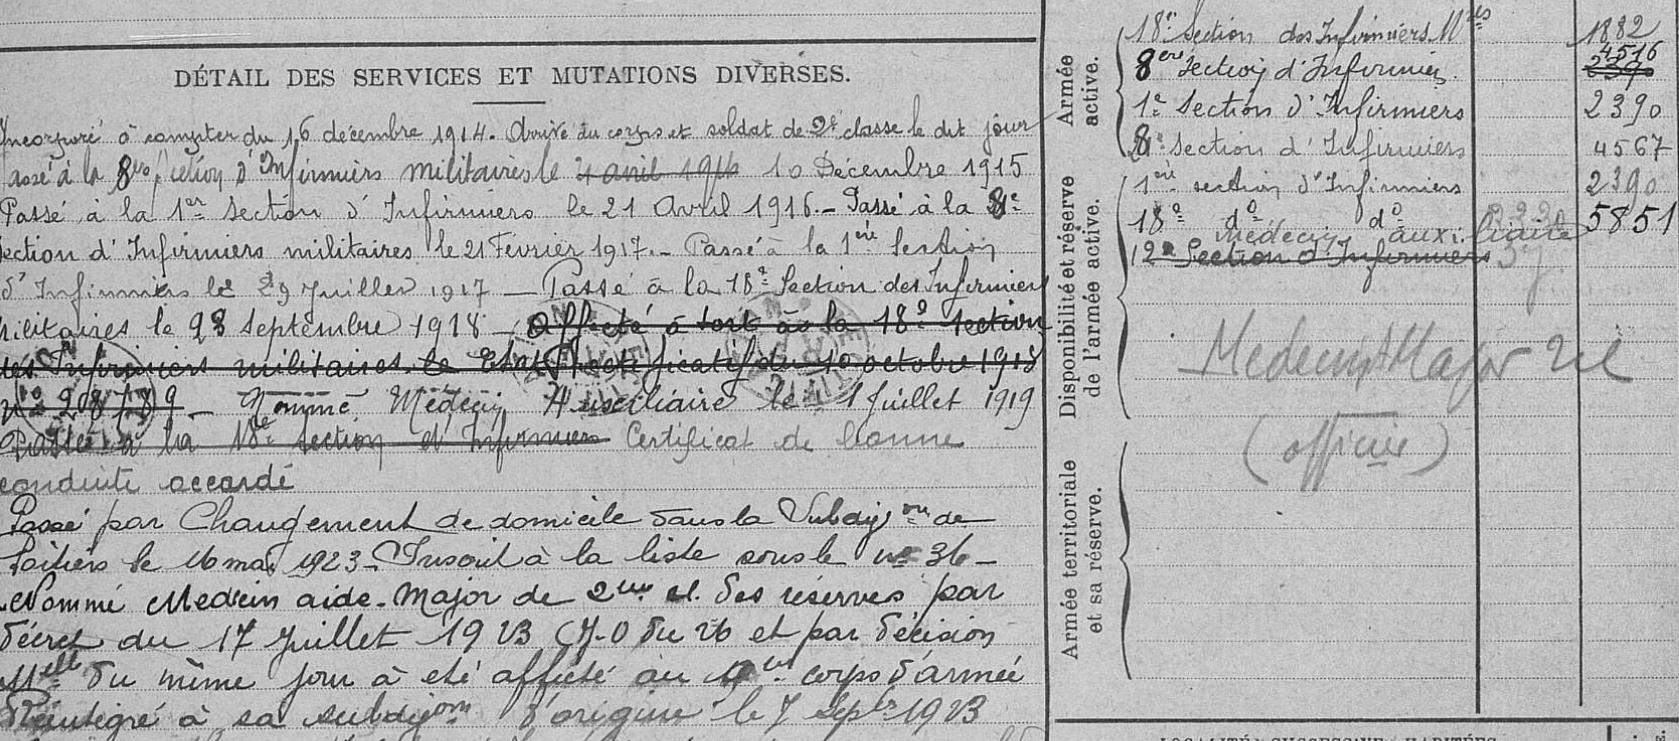 DÉTAIL DES SERVICES ET MUTATIONS DIVERSES.
Incorporé à compter du 16 décembre 1914. Arrivé au corps et soldat de 2e classe le dit jour
assé à la 8ere Section d'Infirmiers militaires le 4 avril 1916 10 Décembre 1915
Passé à la 1er Section d'Infirmiers le 21 Avril 1916.- Passé à la 8e
section d'Infirmiers militaires le 21 Février 1917.- Passé à la 1ère Section
d'Infirmiers le 29 Juillet 1917 - Passé à la 18e Section des Infirmiers
ilitaires le 28 Septembre 1918 - Affecté à tort à la 18e section
des Infirmiers militaires le Rectificatif du 10 octobre 1918
no 208789 - Nommé Médecin Auxiliaire le 1 Juillet 1919
Passé à la 18e Section d'Infirmiers Certificat de bonne
conduite accordé
Passé par Changement de domicile dans la Subdivon de
Poitiers le 16 mai 1923 - Inscrit à la liste sous le no 36 -
Nommé Médecin aide-Major de 2me cl. des réserves par
décret du 17 Juillet 1923 (J.O du 26 et par décision
Mlle du même jour a été affecté au corps d'armée
Réintégré à sa subdivon d'origine le 7 Sepbre 1923
Armée active.
18e Section des Infirmiers Mres 1882
8ere Section d'Infirmiers 4516
1e Section d'Infirmiers 2390
8e Section d'Infirmiers 4567
Disponibilité et réserve de l'armée active.
1ère section d'Infirmiers 2390
18e do do 5851
médecin auxiliaire
12e Section d'Infirmiers
Médecin Major 2e cl
(officier)
Armée territoriale et sa réserve.
LOCALITÉS SUCCESSIVES HABITÉES